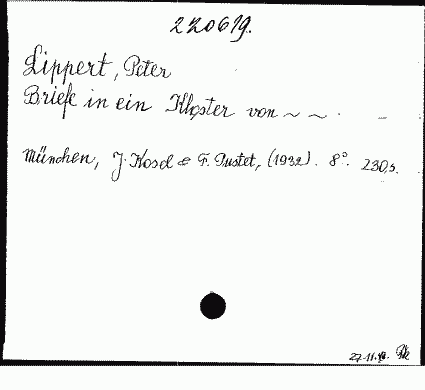 220619.
Lippert, Peter
Briefe in ein Kloster von ~ ~ . –
München, J. Kosel & F. Pustet, (1932). 8°. 230 s.
27.11.